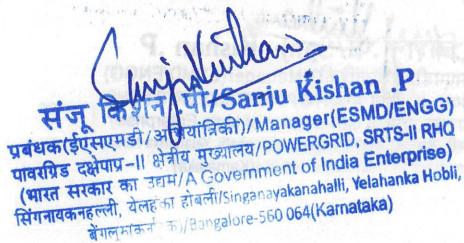 Sanju Kishan
संजू किशन पी/Sanju Kishan .P
प्रबंधक(ईएसएमडी/अभियांत्रिकी)/Manager(ESMD/ENGG)
पावरग्रिड दक्षेपाप्र-II क्षेत्रीय मुख्यालय/POWERGRID, SRTS-II RHQ
(भारत सरकार का उद्यम/A Government of India Enterprise)
सिंगनायकनहल्ली, येलहंका होबली/Singanayakanahalli, Yelahanka Hobli,
/Bangalore-560 064(Karnataka)